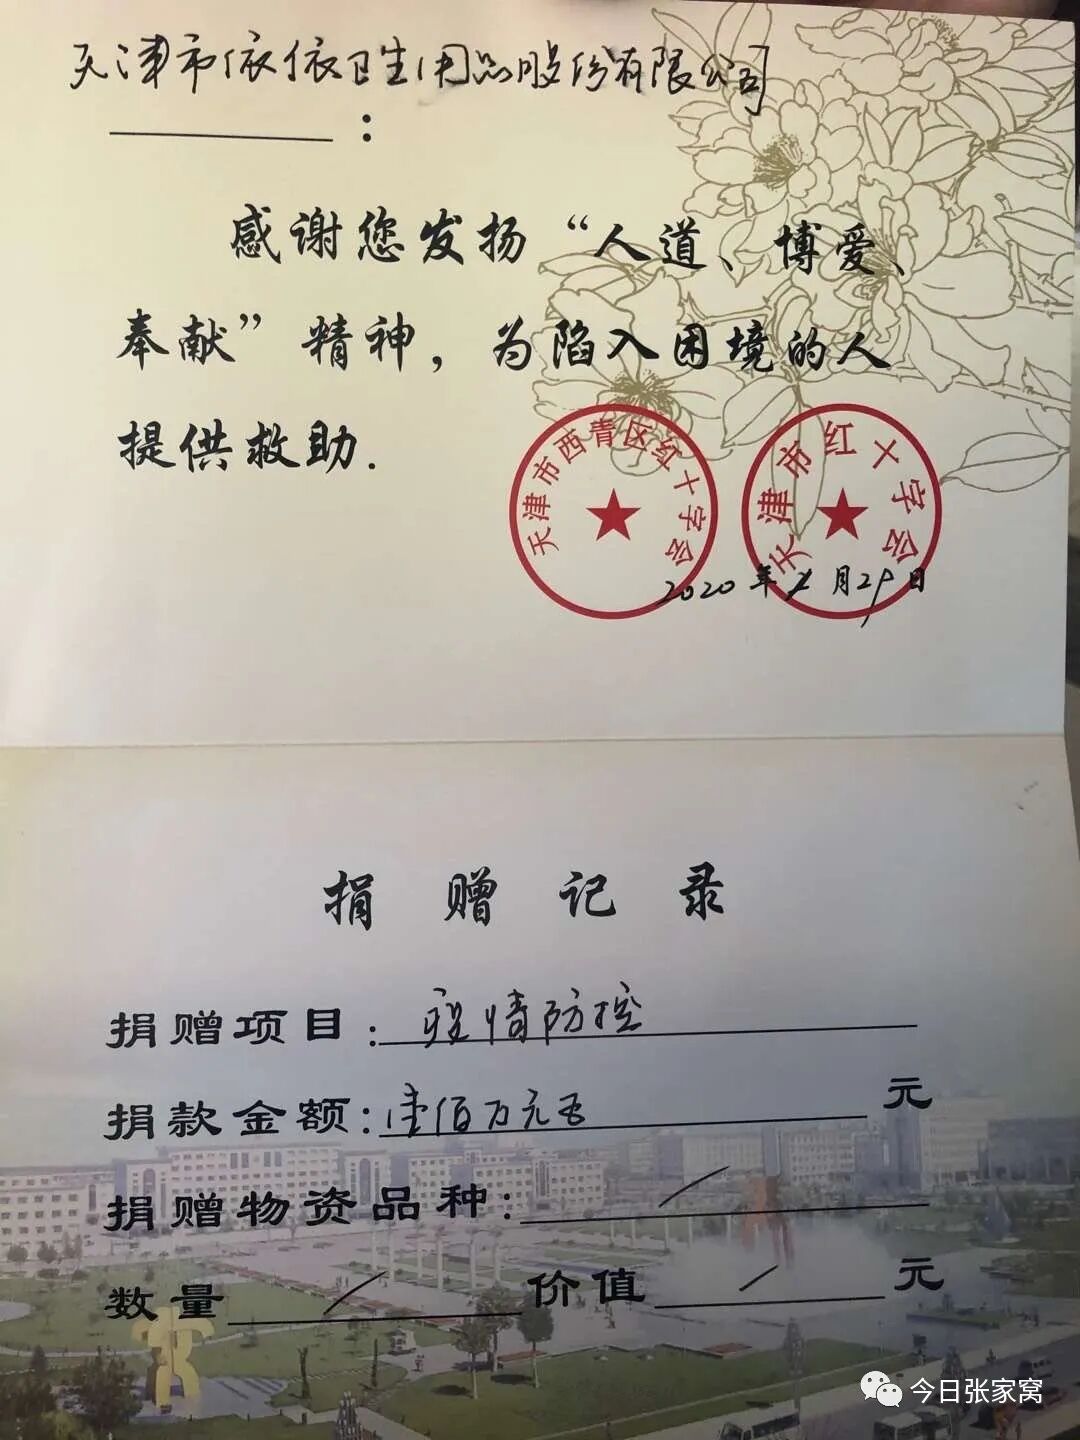 天津市依依卫生用品股份有限公司
：
感谢您发扬“人道、博爱、
奉献”精神，为陷入困境的人
提供救助.
天津市西青区红十字会
天津市红十字会
2020年 月29日
捐赠记录
捐赠项目：疫情防控
捐款金额：壹佰万元整 元
捐赠物资品种： /
数量 / 价值 / 元
今日张家窝